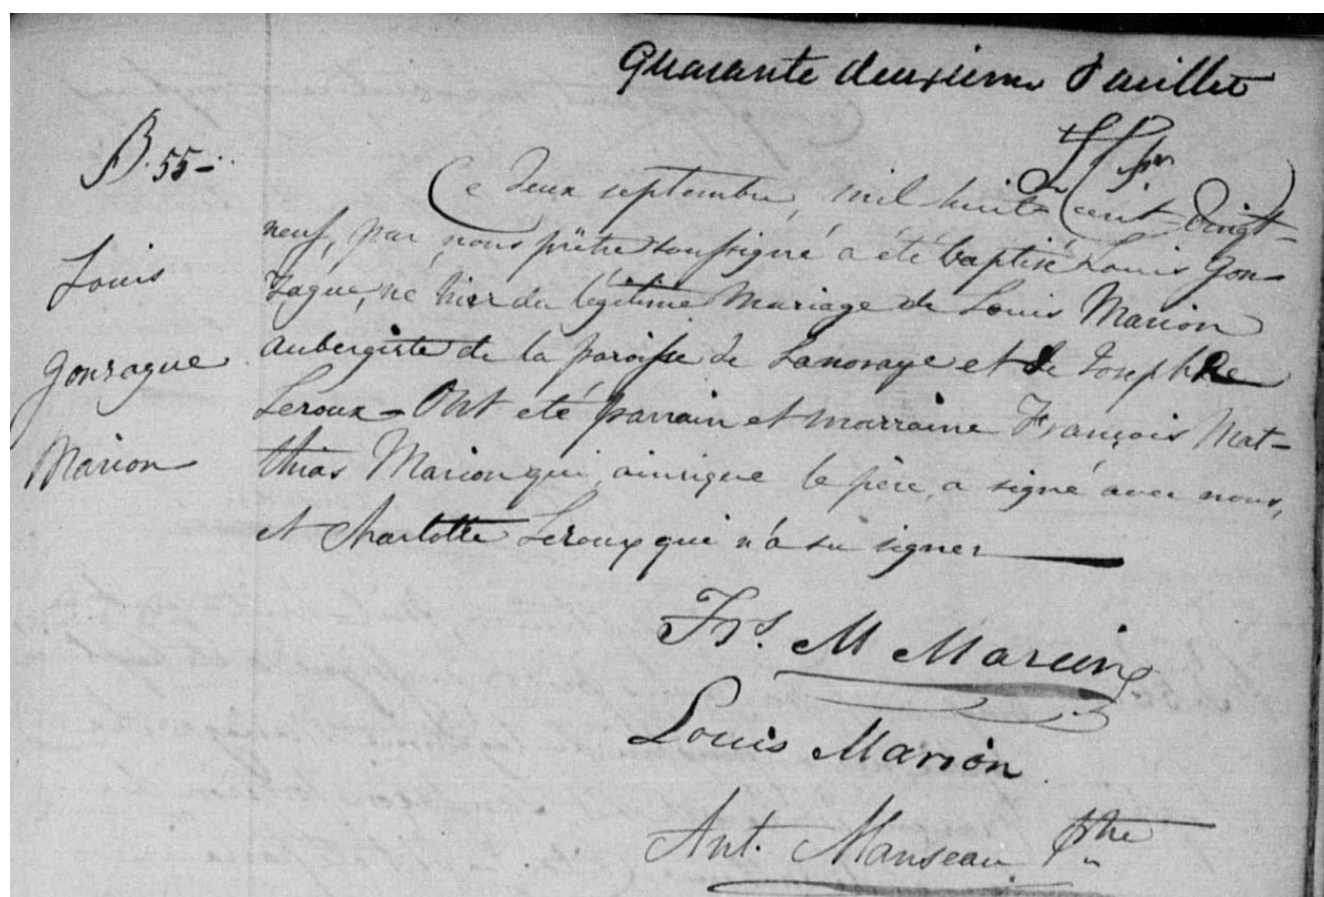 Quarante deuxieme Feuillet
B. 55 -
Louis
Gonzague
Marion
Ce deux septembre, mil huit cent vingt-
neuf, par nous prêtre soussigné a été baptisé Louis Gon-
zague, né hier du légitime Mariage de Louis Marion
aubergiste de la paroisse de Lanoraye et de Josephte
Leroux - Ont été parrain et marraine François Mat-
thias Marion qui, ainsique le père, a signé avec nous,
et Charlotte Leroux qui n'a su signer
Frs. M Marion
Louis Marion
Ant. Manseau Ptre